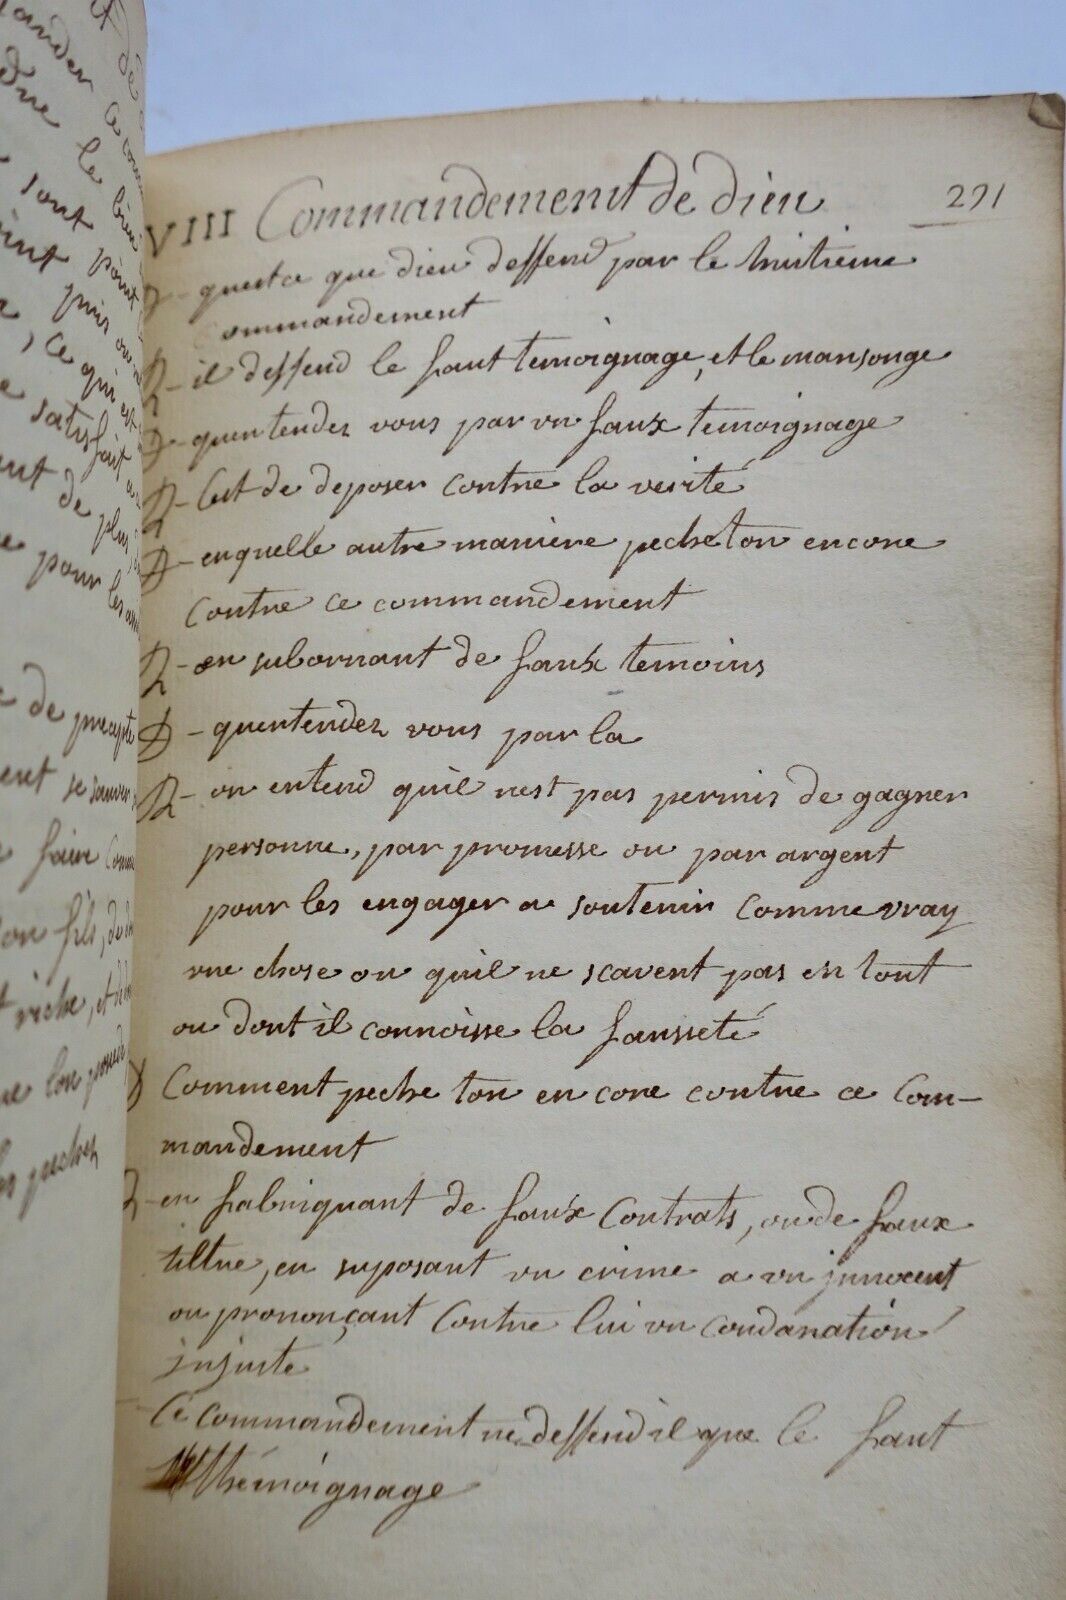 VIII Commandement de dieu 291
D - questce que dieu deffend par le huitieme
commandement
R - il deffend le faut temoignage, et le mansonge
D - quentendez vous par un faux temoignage
R - Cest de deposer contre la verité
D - enquelle autre maniere peche ton encore
contre ce commandement
R - en subornant de faux temoins
D - quentendez vous par la
R - on entend quil nest pas permis de gagner
personne, par promesse ou par argent
pour les engager a soutenir comme vray
une chose ou quil ne scavent pas en tout
ou dont il connoisse la fausseté
D Comment peche ton en core contre ce Com-
mandement
R - en fabriquant de faux Contrats, ou de faux
tiltre, en suposant un crime a un jnnocent
ou prononçant Contre lui un condanation
injuste
- Ce commandement ne deffend il que le faut
thémoignage
ander
due le bien
sont point
point puis
, ce qui est
satisfait
de plus
pour les
de precepte
se sauver
faire
fils, de
riche, et
lon
pechez